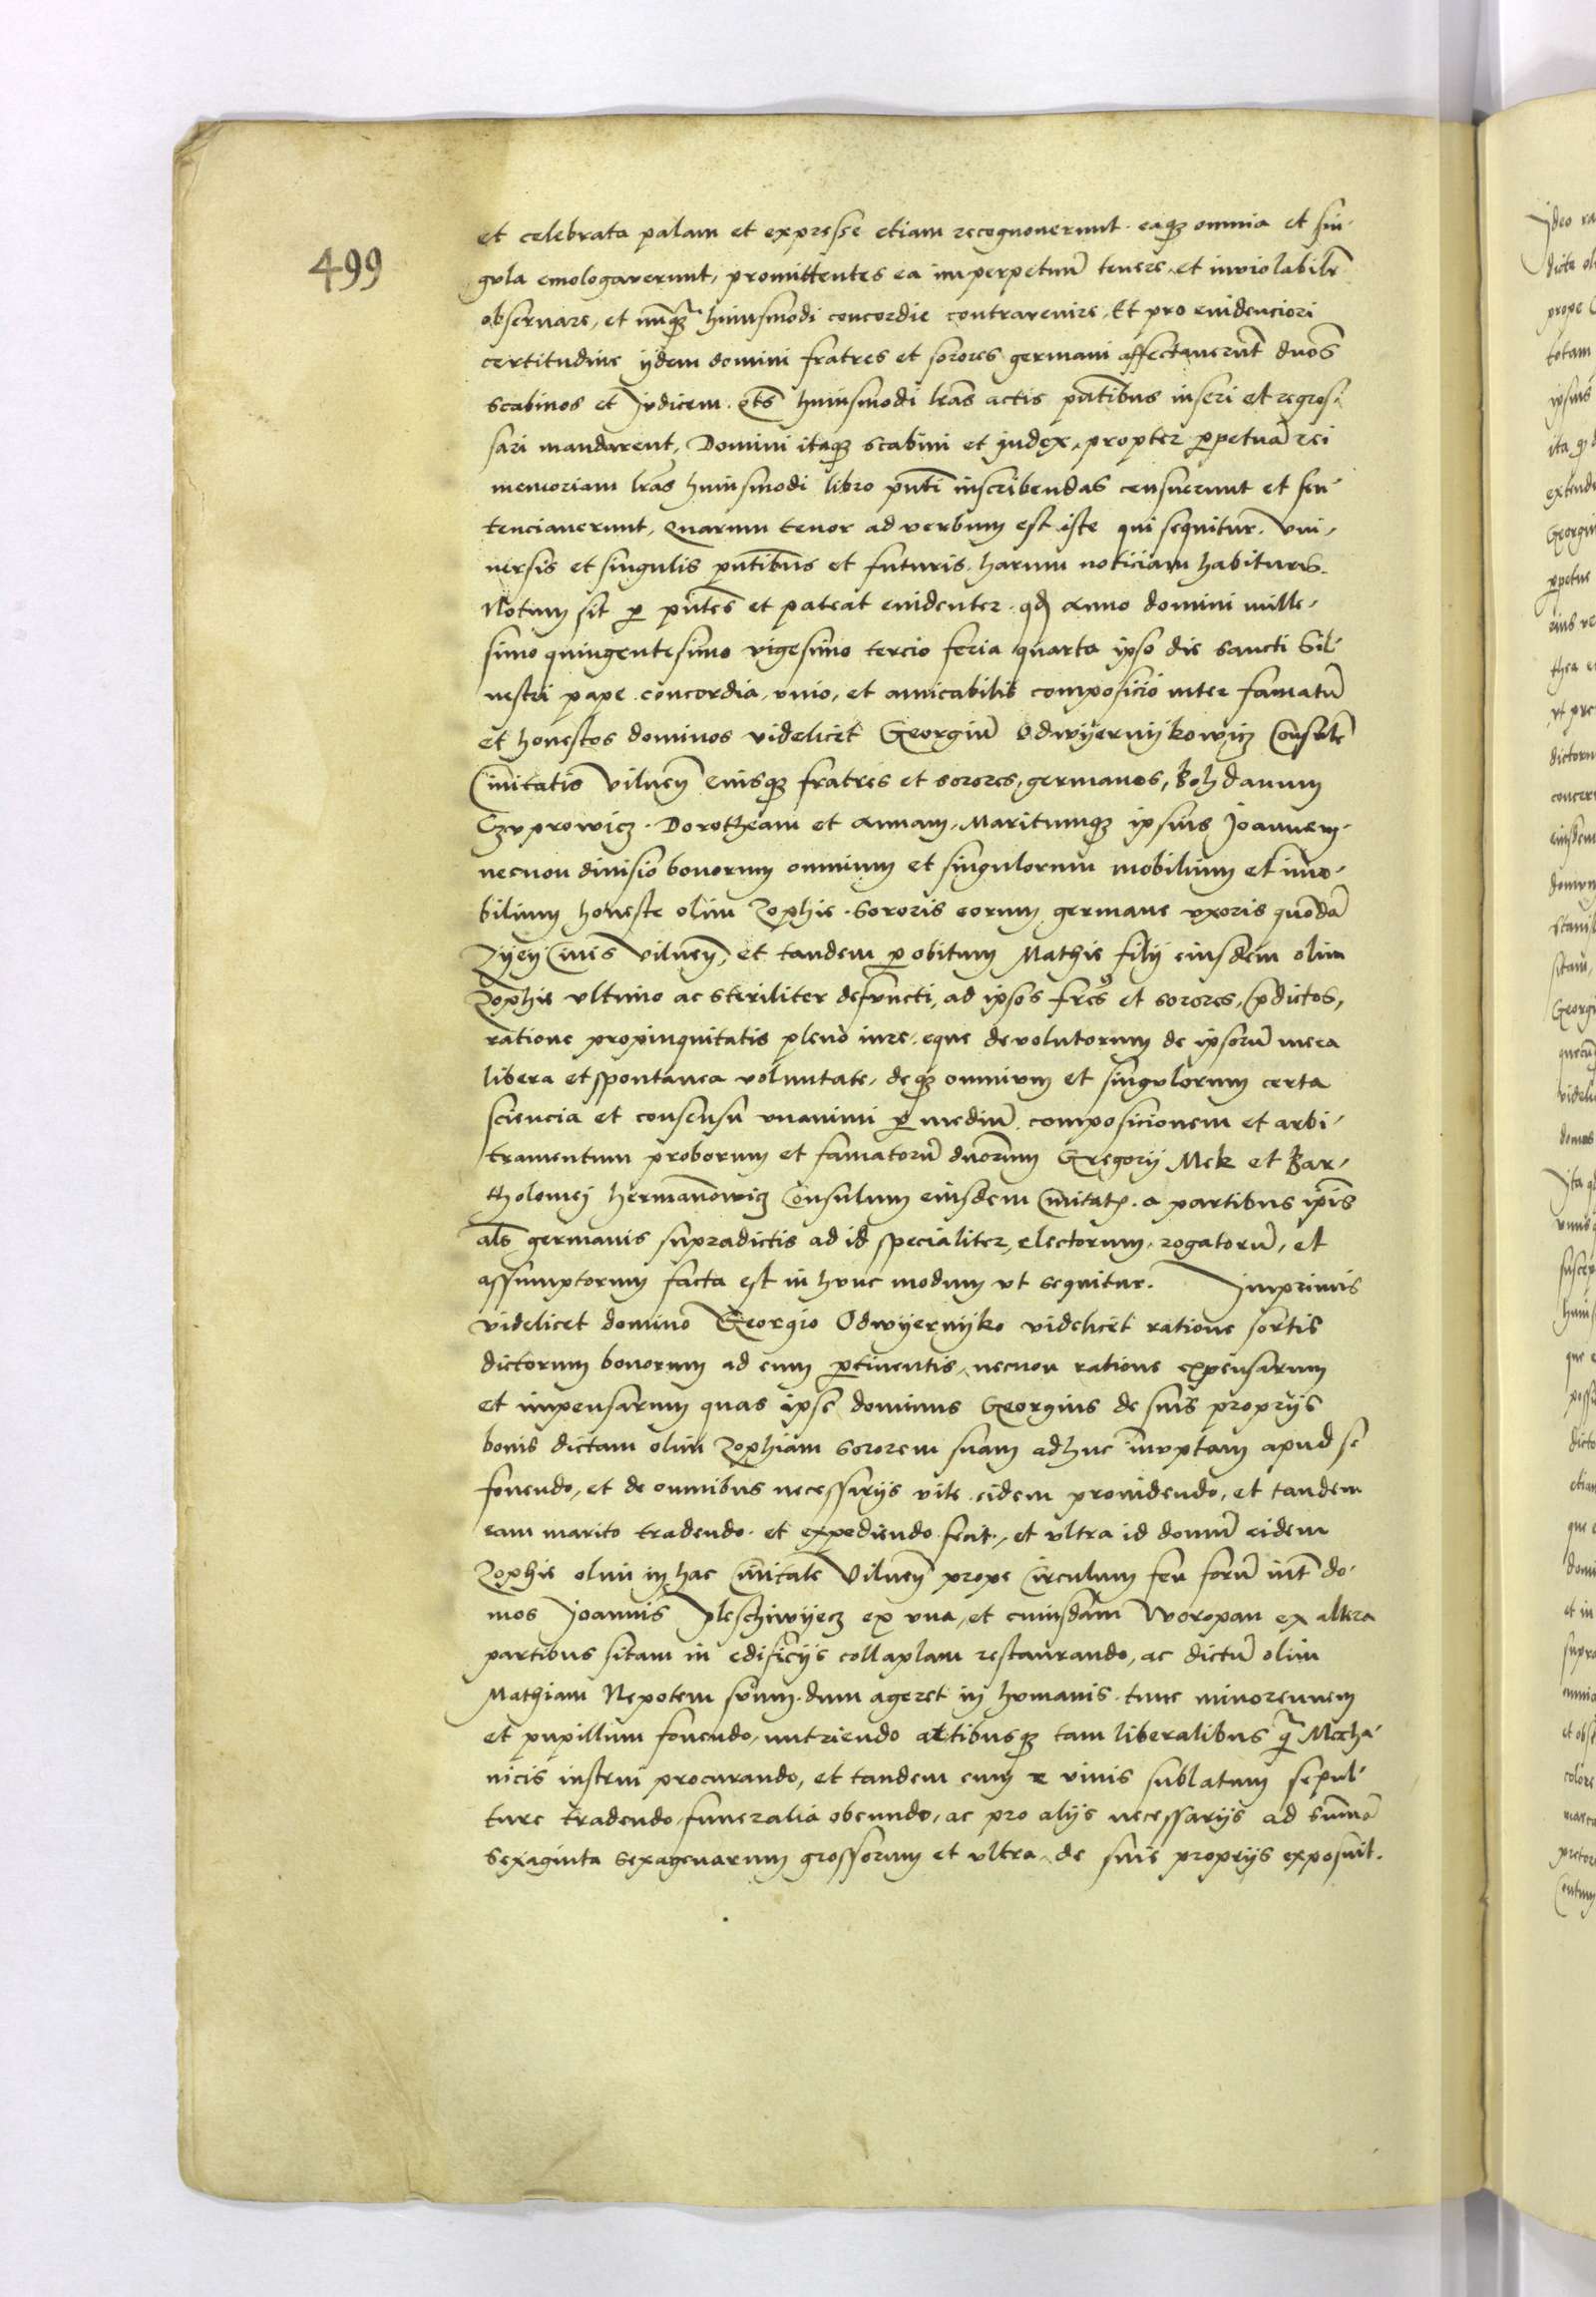 499
et celebrata palam et expresse etiam recognouerunt. eaqʒ omnia et sin-
gula emologaverunt, promittentes ea imperpetuū tenere, et inviolabilr̄
obseruare, et nūqʒ huiusmodi concordie contravenire, Et pro euidenciori
certitudine ijdem domini fratres et sorores germani affectaverūt duos
scabinos et Judicem. qt̄s huiusmodi lr̄as actis pn̄tibus inseri et regros-
sari mandarent, Domini itaqʒ scabini et iudex, propter ꝑpetuā rei
memoriam lr̄as huiusmodi libro pn̄ti inscribendas censuerunt et sen-
tenciaverunt, Quarum tenor ad verbum est iste qui sequitur. Vni-
uersis et singulis pn̄tibus et futuris. harum noticiam habituris.
Notum sit ꝑ pn̄tes et pateat euidenter. qđ anno domini mille-
simo quingentesimo vigesimo tercio feria quarta ipso die sancti Sil-
uestri pape. concordia, vnio, et amicabilis composicio inter famatū
et honestos dominos videlicet Georgiū Odwyernykowicz Consulē
Ciuitatis Vilneñ eiusqʒ fratres et sorores, germanos, Bohdanum
Czuprowicz. Dorotheam et Annam, Maritumqʒ ipsius Joannem.
necnon diuisio bonorum omnium et singulorum mobilium et imo-
bilium honeste olim Zophie. Sororis eorum germane vxoris quondā
Ciuis Vilneñ, et tandem ꝑ obitum Mathie filij eiusdem olim
Zophie vltimo ac steriliter defuncti, ad ipsos fr̄es et sorores, p̄dictos,
ratione propinquitatis pleno iure. eque devolutorum de ipsorū mera
libera et spontanea voluntate, deqʒ omnium et singulorum certa
sciencia et consensu vnanimi ꝑ mediū. composicionem et arbi-
tramentum proborum et famatorū duorum Gregorij Mek et Bar-
tholomej hermanowicz Consulum eiusdem Ciuitatꝭ. a partibus ip̄is
al̄s germanis supradictis ad id specialiter, electorum, rogatorū, et
assumptorum facta est in hunc modum vt sequitur. Imprimis
videlicet domino Georgio Odwyernyko videlicet ratione sortis
dictorum bonorum ad eum ꝑtinentis, necnon ratione expensarum
et impensarum quas ipse dominus Georgius de suis proprijs
bonis dictam olim Zophiam sororem suam adhuc inuptam apud se
fouendo, et de omnibus necessarijs vite eidem prouidendo, et tandem
eam marito tradendo. et expediendo fecit, et vltra id domū eidem
Zophie olim in hac Ciuitate Vilneñ prope Circulum seu forū int̄ do-
mos Joannis Pleschiwyecz ex vna, et cuiusdam Woropan ex altera
partibus sitam in edificijs collaplam restaurando, ac dictū olim
Mathiam Nepotem suum. dum ageret in humanis. tunc minorennem
et pupillum fouendo, nutriendo artibusqʒ tam liberalibus q̄ Mecha-
nicis instrui procurando, et tandem eum e viuis sublatum sepul-
ture tradendo, funeralia obeundo, ac pro alijs necessarijs ad summā
Sexaginta sexagenarum grossorum et vltra, de suis proprijs exposuit.